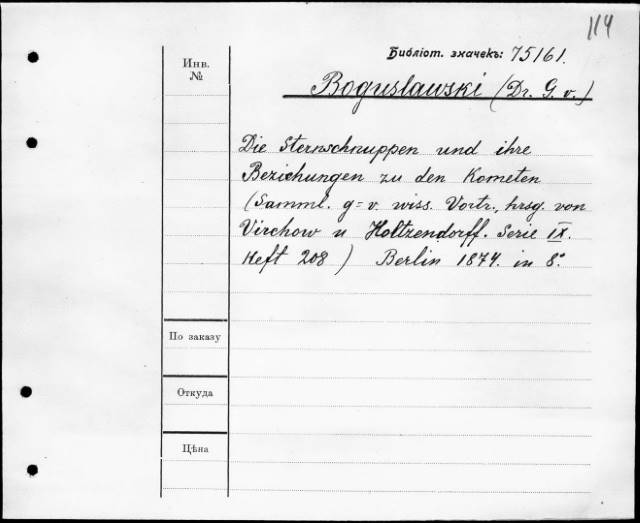 114
Библіот. значекъ: 75161.
Инв.
№
Boguslawski (Dr. G. v.)
Die Sternschnuppen und ihre
Beziehungen zu den Kometen
(Samml. g=v. wiss. Vortr., hrsg. von
Virchow u Holtzendorff. Serie IX.
Heft 208) Berlin 1874. in 8°
По заказу
Откуда
Цѣна